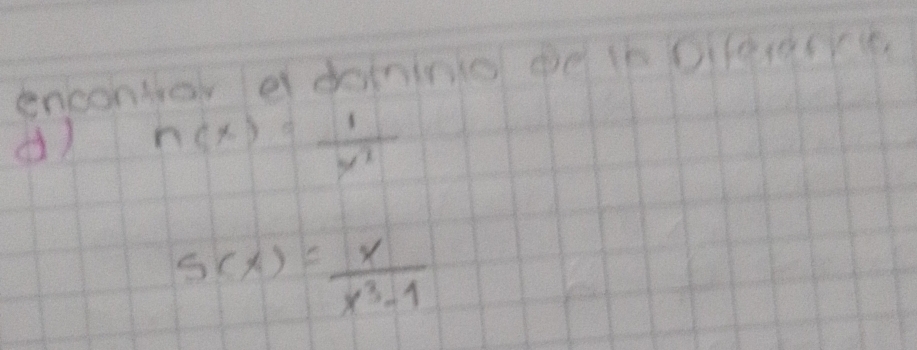 encontrar el dominio de la Diferencia.
d) h(x) = 1/x²
s(x) = x/x³-1